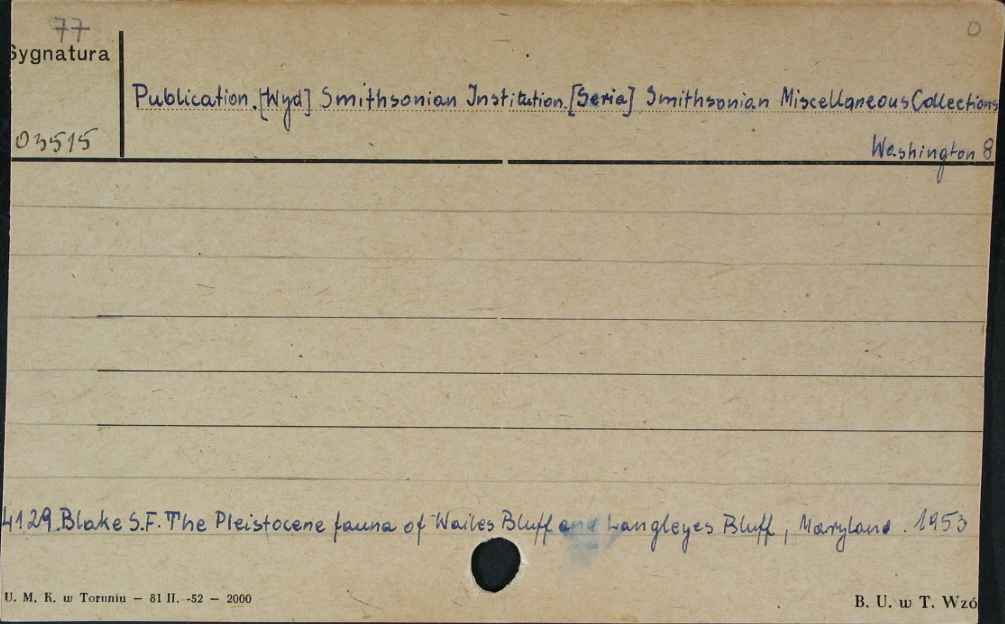 77
Sygnatura
O
Publication. [Wyd] Smithsonian Institution. [Seria] Smithsonian Miscellaneous Collections
03515
Washington 8
4129. Blake S.F. The Pleistocene fauna of Wailes Bluff and Langleyes Bluff, Maryland. 1953
U. M. K. w Toruniu — 81 II. -52 — 2000
B. U. w T. Wzó